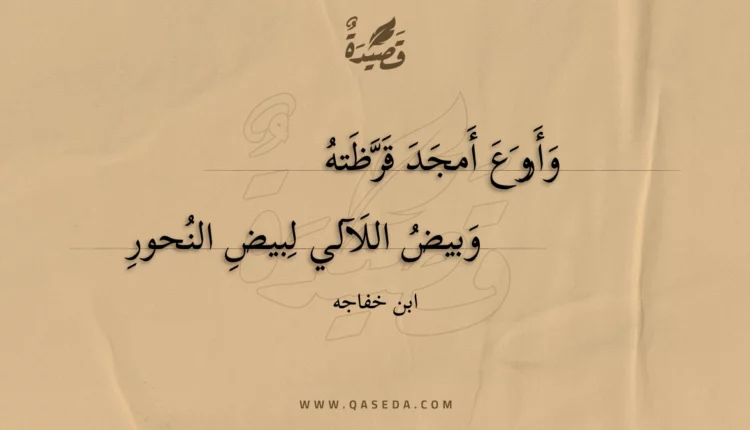 قَصِيدَةٌ
وَأَروَعَ أَمجَدَ قَرَّظَتهُ
وَبيضُ اللَآلي لِبيضِ النُحورِ
ابن خفاجه
WWW.QASEDA.COM